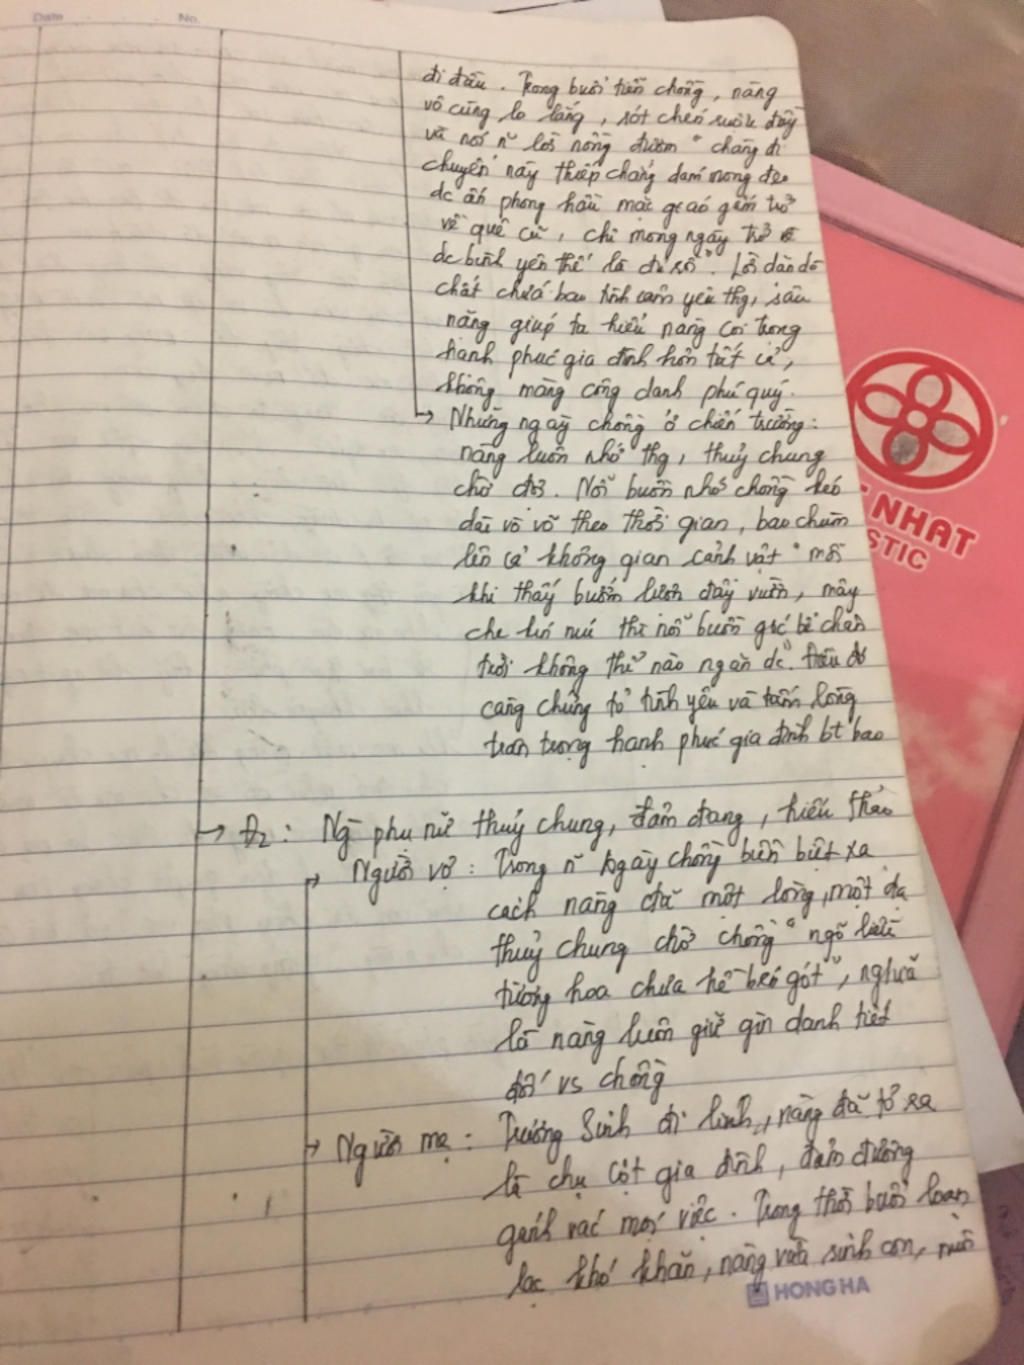 Date No.
đi đầu. Trong buổi tiễn chồng, nàng
vô cùng lo lắng, rót chén rượu đầy
và nói n~ lời nồng đượm "chàng đi
chuyến này thiếp chẳng dám mong đeo
dc ấn phong hầu mặc gấm trở
về quê cũ, chỉ mong ngày trở
dc bình yên thế là đủ rồi". Lời dặn dò
chất chứa bao tình cảm yêu thg, sâu
nặng giúp ta hiểu nàng coi trọng
hạnh phúc gia đình hơn tất cả,
không màng công danh phú quý.
→ Những ngày chồng ở chiến trường:
nàng luôn nhớ thg, thuỷ chung
chờ đợi. Nỗi buồn nhớ chồng kéo
dài vò võ theo thời gian, bao chùm
lên cả không gian cảnh vật "mỗi
khi thấy bướm lượn đầy vườn, mây
che kín núi thì nỗi buồn góc bể chân
trời không thể nào ngăn dc". Điều đó
càng chứng tỏ tình yêu và tấm lòng
trân trọng hạnh phúc gia đình bt bao
→ Đ2: Ng` phụ nữ thuỷ chung, đảm đang, hiếu thảo
→ Người vợ: Trong n~ ngày chồng biền biệt xa
cách nàng đã một lòng, một dạ
thuỷ chung chờ chồng "ngõ liễu
tường hoa chưa hề bén gót", nghĩa
là nàng luôn giữ gìn danh tiết
đối vs chồng
→ Người mẹ: Trương Sinh đi lính, nàng đã tỏ ra
là chụ cột gia đình, đảm đương
gánh vác mọi việc. Trong thời buổi loạn
lạc khó khăn, nàng vừa sinh con,
HONG HA
NHAT
STIC